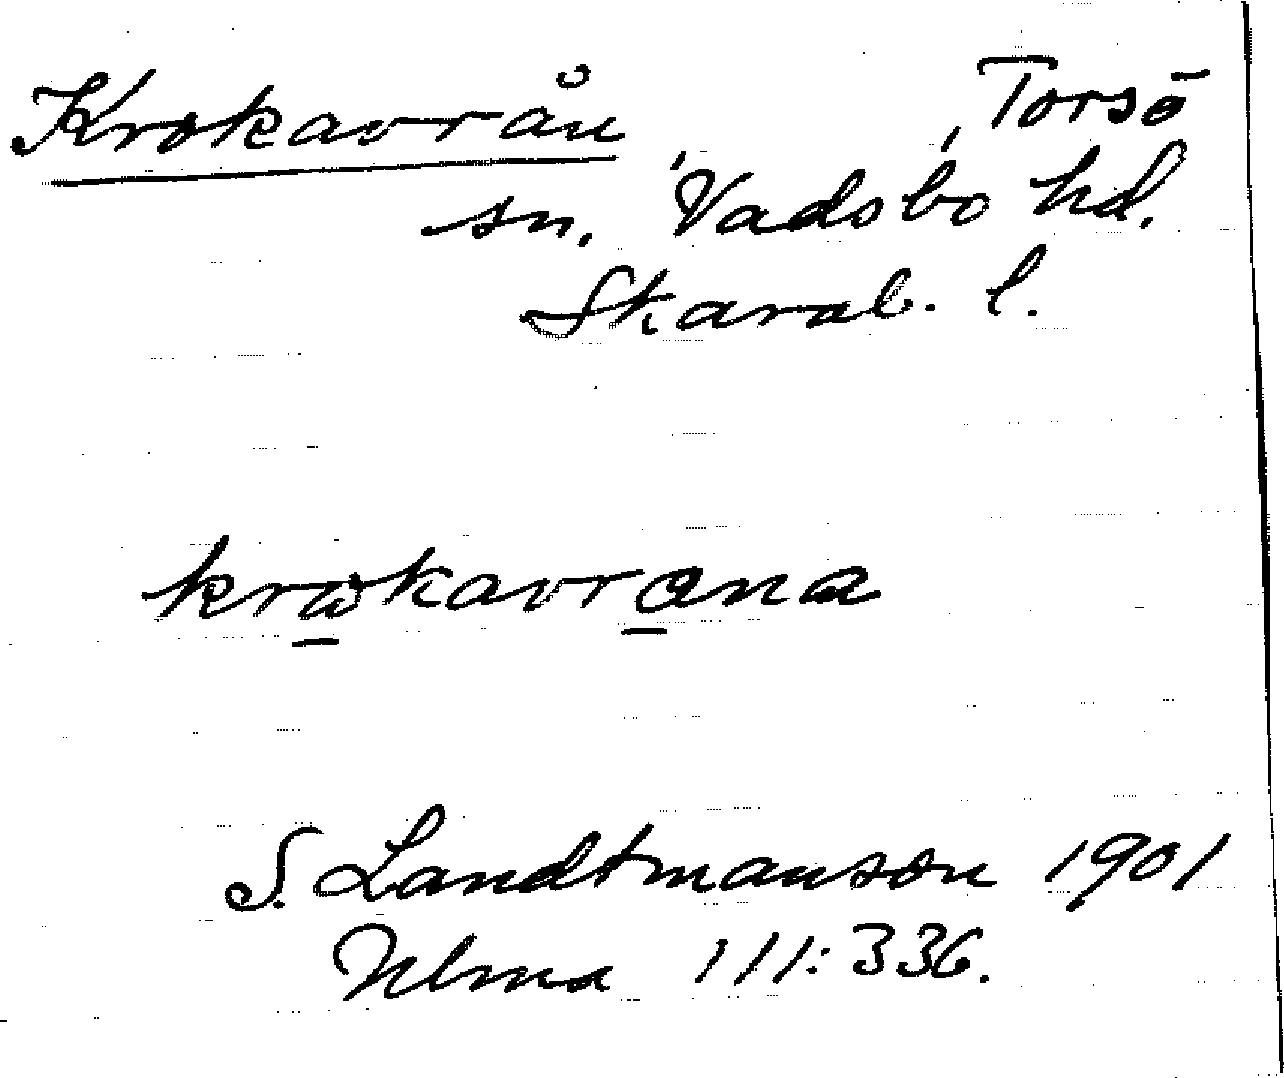 Krokavrån, Torsö
sn., Vadsbo hd.
Skarab. l.
krωkavrana
S. Landtmanson 1901
Ulma 111:336.